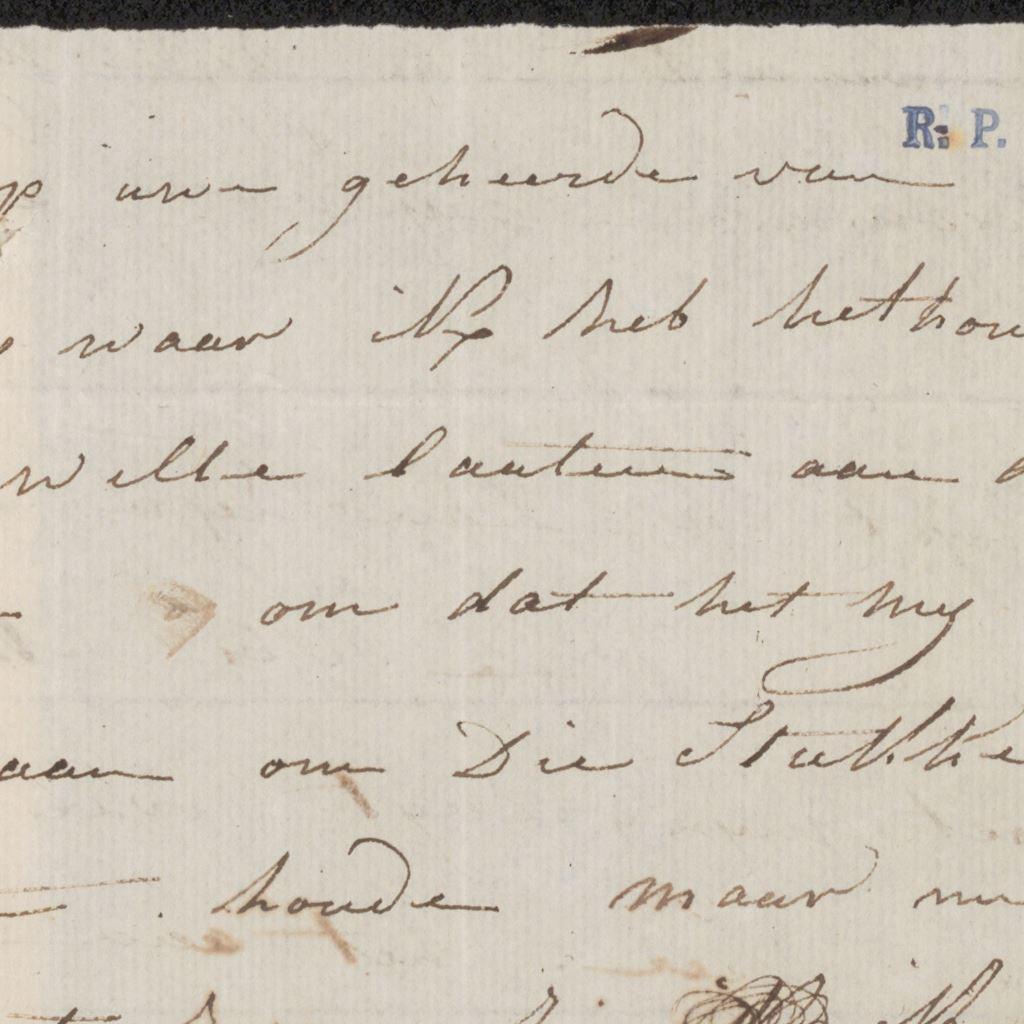 R: P.
uwe geheerde van
waar ik heb het hou
wille laaten aan
om dat het my
aan om Die Stukke
houde maar nu